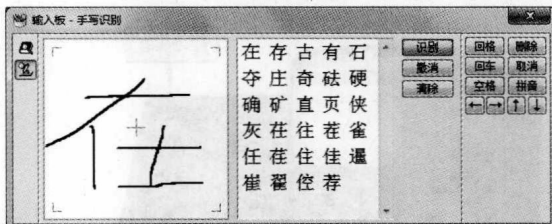 输入板 - 手写识别
在 存 古 有 石
夺 庄 奇 砝 硬
确 矿 直 页 侠
灰 茌 往 茬 雀
任 荏 住 佳 暹
崔 翟 倥 荐
识别
撤消
清除
回格 删除
回车 取消
空格 拼音
←→ ↑↓
在